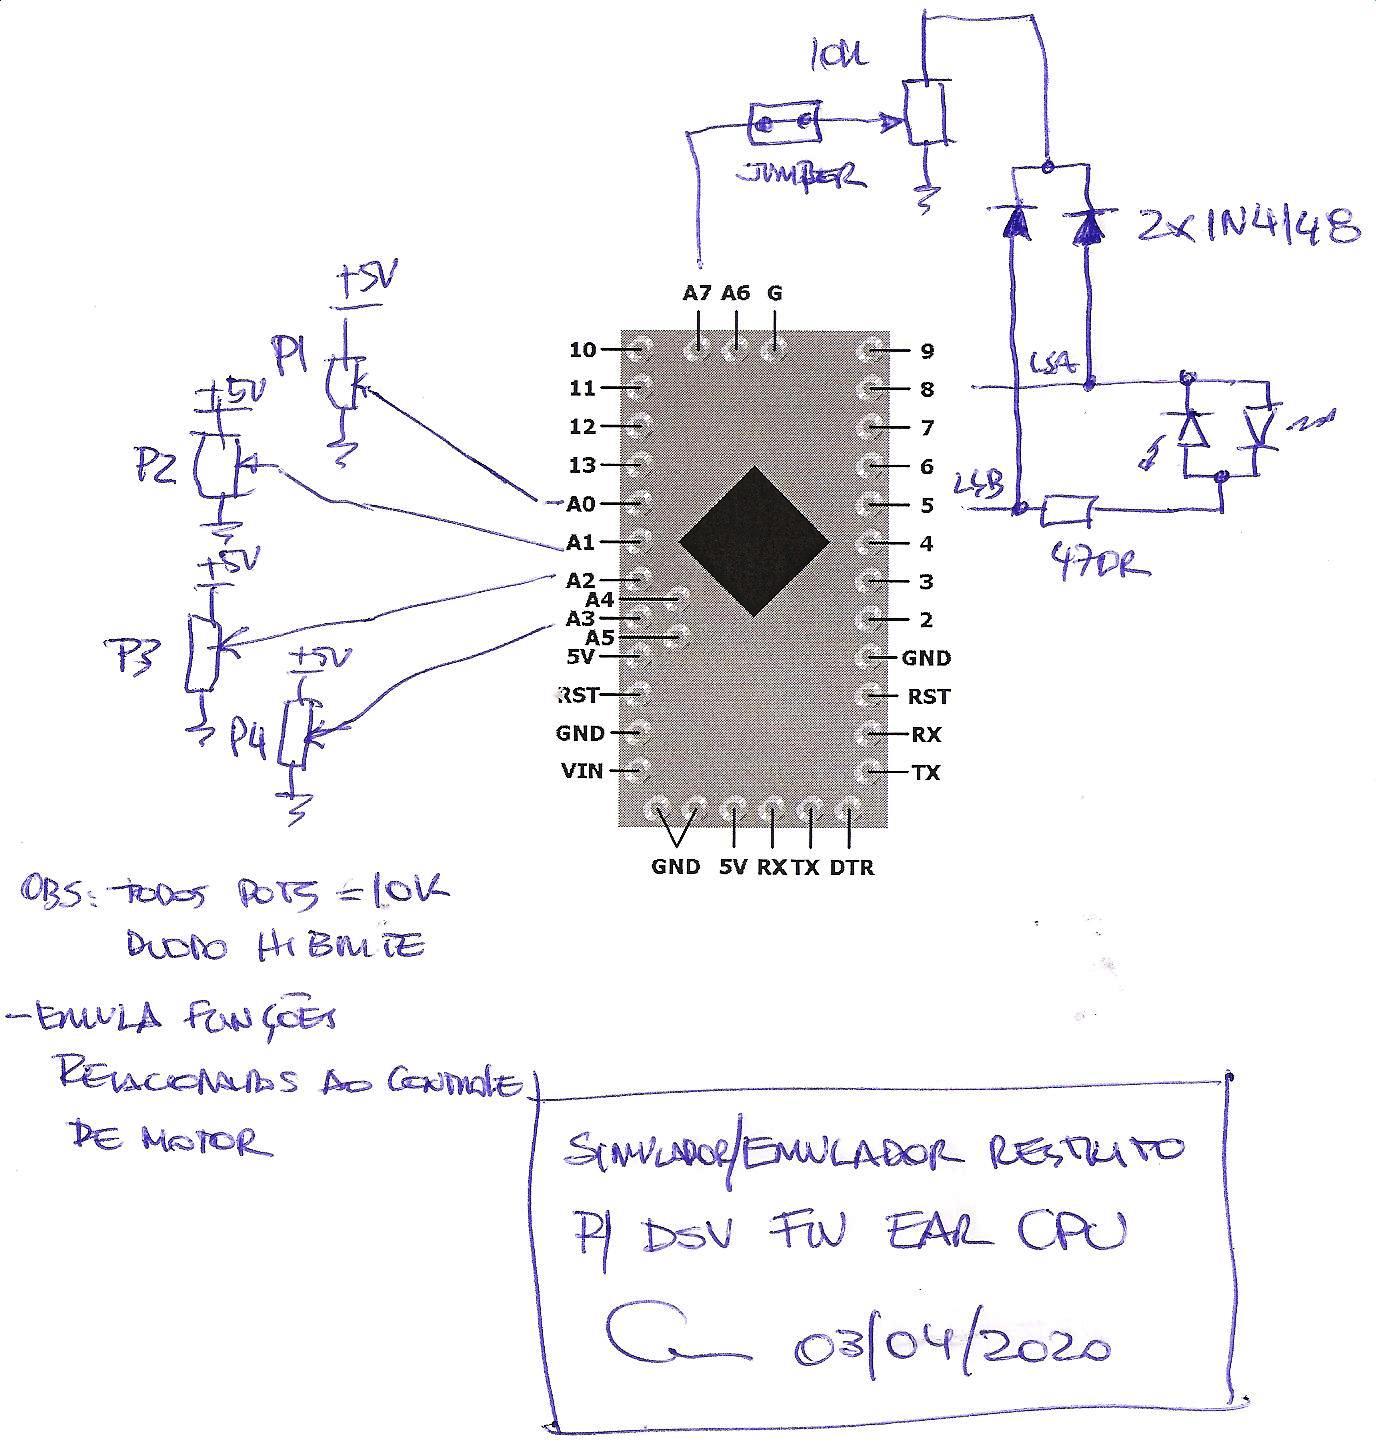 10K
JUMPER
2x1N4148
+5V
P1
+5V
P2
+5V
P3
+5V
P4
A7 A6 G
10
11
12
13
A0
A1
A2
A4
A3
A5
5V
RST
GND
VIN
9
8
7
6
5
4
3
2
GND
RST
RX
TX
GND 5V RX TX DTR
LSA
LSB
470R
OBS: TODOS POTS = 10K
- EMULA FUNÇÕES
RELACIONADAS AO CONTROLE
DE MOTOR
SIMULADOR/EMULADOR RESTRITO
P/ DSV FW EAR CPU
03/04/2020